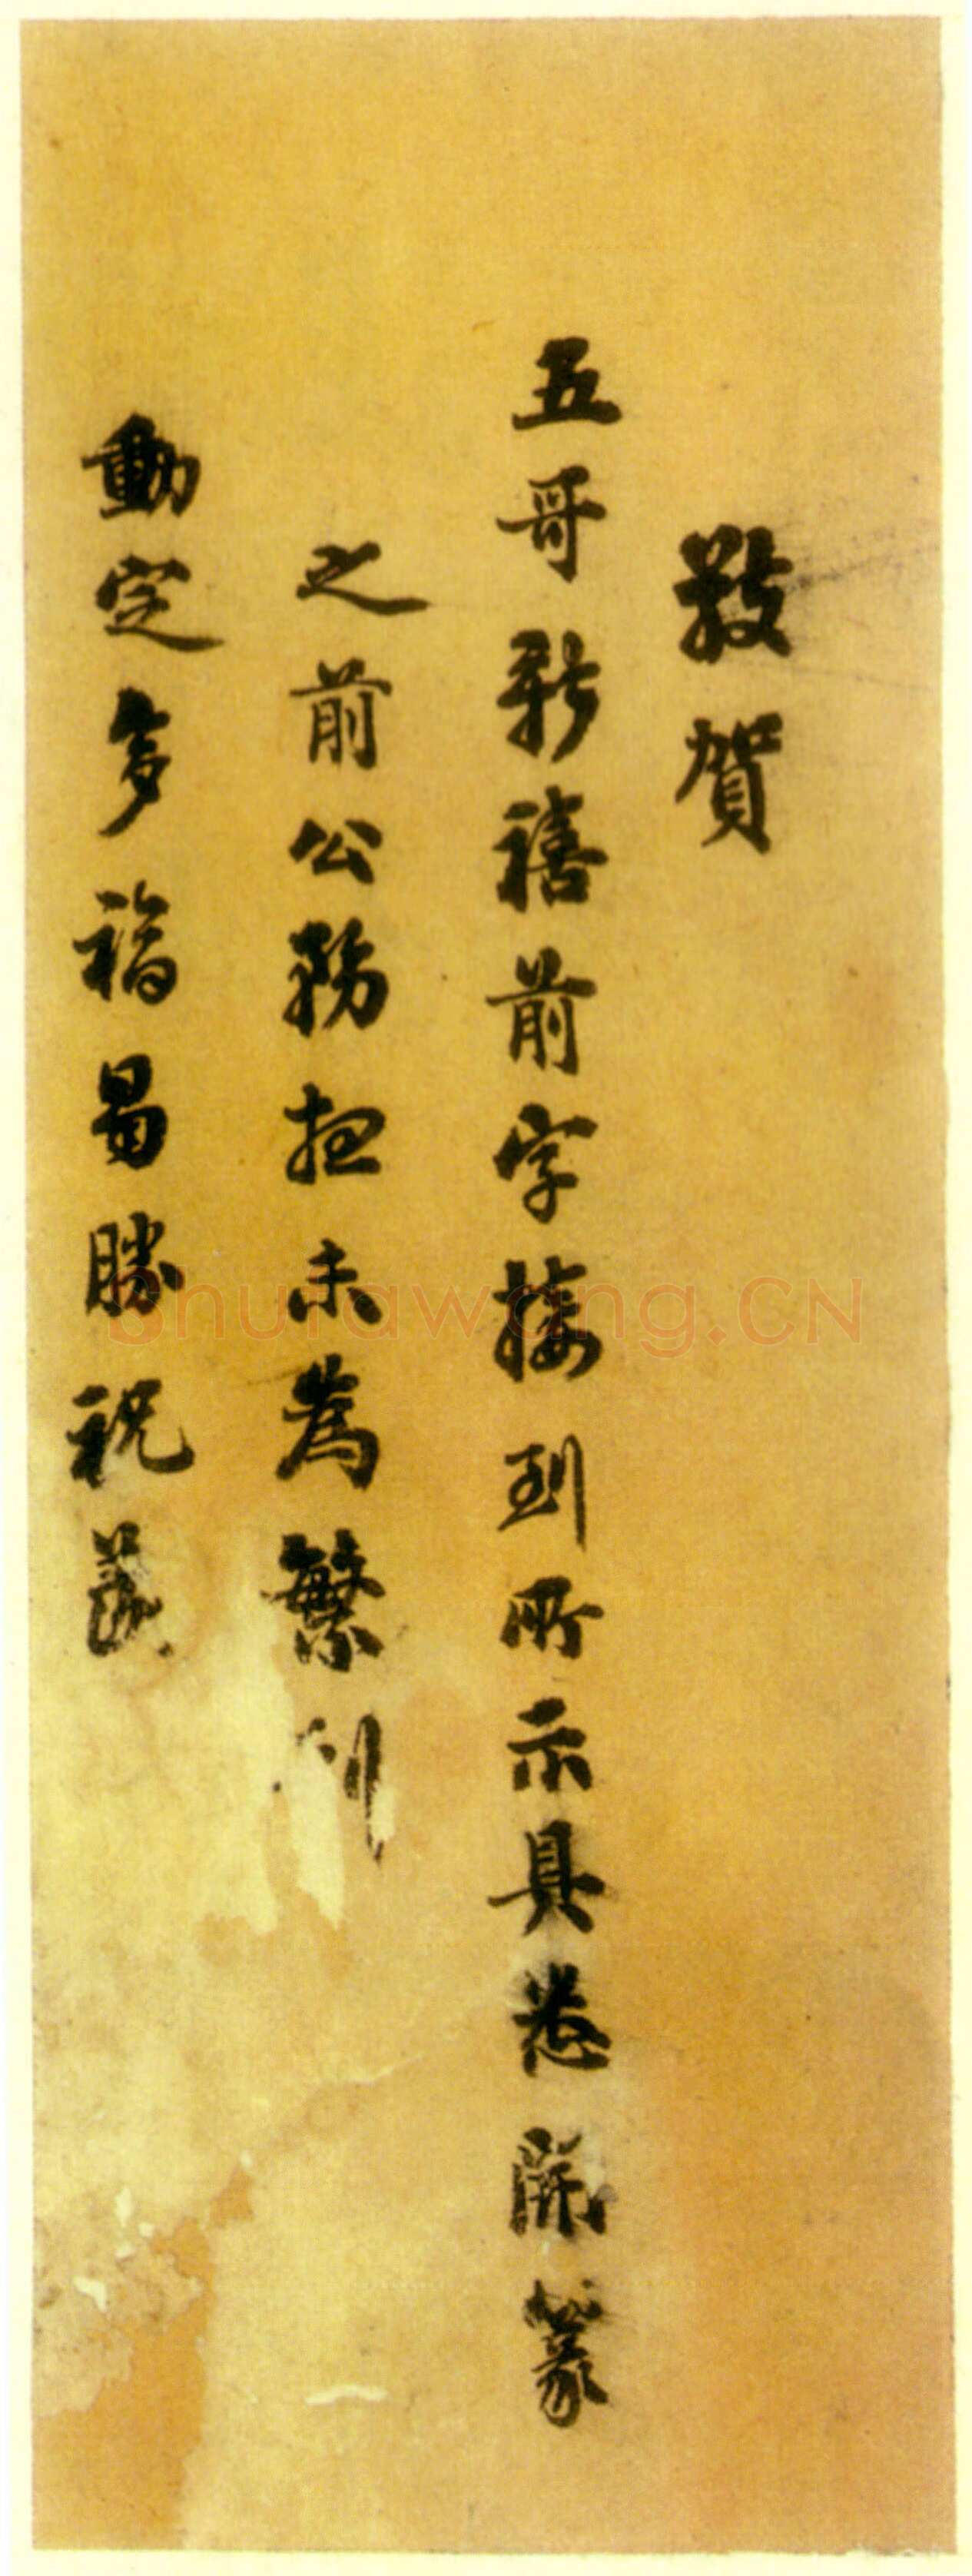 敬賀
五哥新禧前字接到所示具悉開篆
之前公務想未為繁劇
動定多福曷勝祝羨
Shufawang.CN